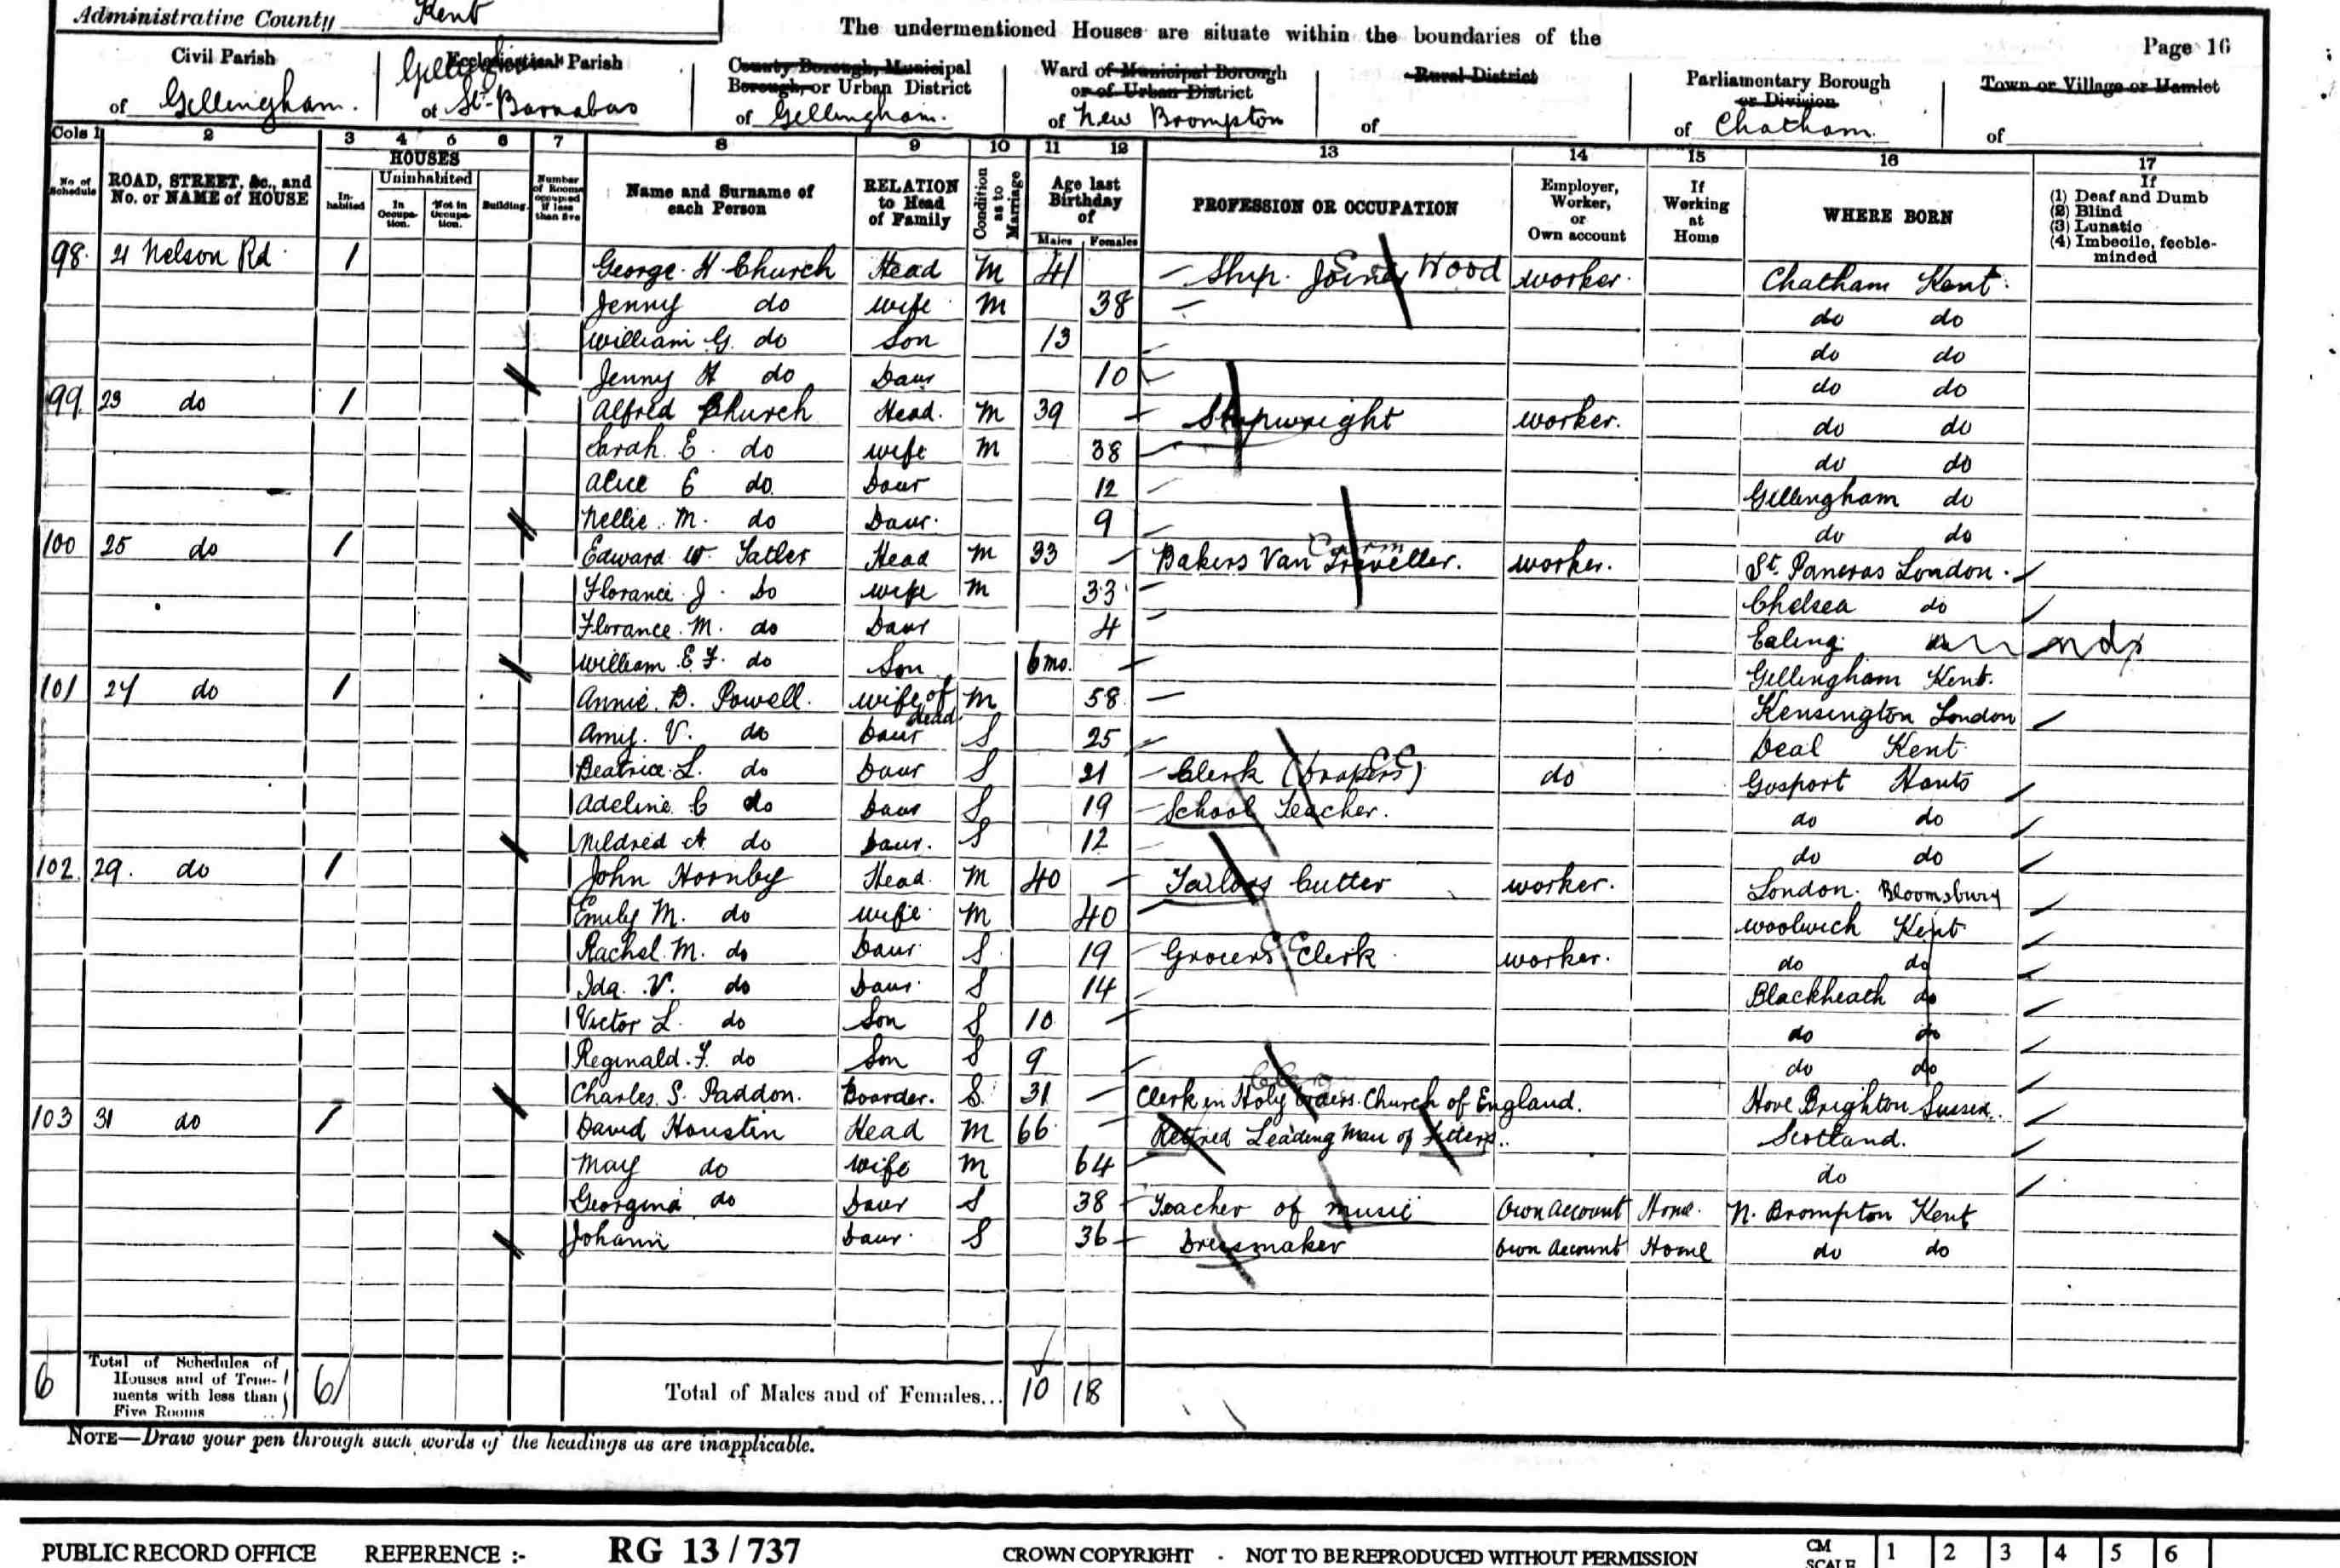 Administrative County Kent
The undermentioned Houses are situate within the boundaries of the
Page 16
Civil Parish of Gillingham.
Ecclesiastical Parish of Gillingham St. Barnabas
County Borough, Municipal Borough, or Urban District of Gillingham.
Ward of Municipal Borough or of Urban District of New Brompton
Rural District of
Parliamentary Borough or Division of Chatham.
Town or Village or Hamlet of
Cols 1 2 3 4 5 6 7 8 9 10 11 12 13 14 15 16 17
No. of Schedule
ROAD, STREET, &c., and No. or NAME of HOUSE
HOUSES
Inhabited
Uninhabited
In Occupation.
Not in Occupation.
Building.
Number of Rooms occupied if less than five
Name and Surname of each Person
RELATION to Head of Family
Condition as to Marriage
Age last Birthday of
Males Females
PROFESSION OR OCCUPATION
Employer, Worker, or Own account
If Working at Home
WHERE BORN
If (1) Deaf and Dumb (2) Blind (3) Lunatic (4) Imbecile, feeble-minded
98. 21 Nelson Rd. 1 George H Church Head M 41 Ship Joiner Wood worker. Chatham Kent.
Jenny do wife M 38 do do
William G. do Son 13 do do
Jenny H do Daur 10 do do
99 23 do 1 Alfred Church Head. M 39 Shipwright worker. do do
Sarah E. do wife M 38 do do
Alice E do Daur 12 Gillingham do
Nellie M. do Daur. 9 do do
100 25 do 1 Edward W. Satler Head M 33 Bakers Van Traveller. worker. St. Pancras London.
Florance J. Do wife M 33 Chelsea do
Florance M. do Daur 4 Ealing do
William E. F. do Son 6 mo. Gillingham Kent.
101 27 do 1 Annie. D. Powell. wife of head M 58 Kensington London
Amy. V. do Daur S 25 Deal Kent
Beatrice L. do Daur S 21 Clerk (Drapers) do Gosport Hants
Adeline C do Daur S 19 School Teacher. do do
Mildred A do Daur. S 12 do do
102 29. do 1 John Hornby Head. M 40 Tailors Cutter worker. London. Bloomsbury
Emily M. do wife M 40 Woolwich Kent
Rachel M. do Daur S 19 Grocers Clerk worker. do do
Ida. V. do Daur. S 14 Blackheath do
Victor L. do Son S 10 do do
Reginald. F. do Son S 9 do do
Charles. S. Paddon. Boarder. S. 31 Clerk in Holy Orders. Church of England. Hove Brighton Sussex.
103 31 do 1 David Houstin Head M 66 Retired Leading Man of Fitters. Scotland.
May do wife M 64 do
Georgina do Daur S 38 Teacher of music Own Account Home. N. Brompton Kent
Johann Daur. S 36 Dressmaker Own Account Home do do
6 Total of Schedules of Houses and of Tenements with less than Five Rooms 6
Total of Males and of Females... 10 18
NOTE—Draw your pen through such words of the headings as are inapplicable.
PUBLIC RECORD OFFICE REFERENCE :- RG 13 / 737 CROWN COPYRIGHT - NOT TO BE REPRODUCED WITHOUT PERMISSION CM SCALE 1 2 3 4 5 6